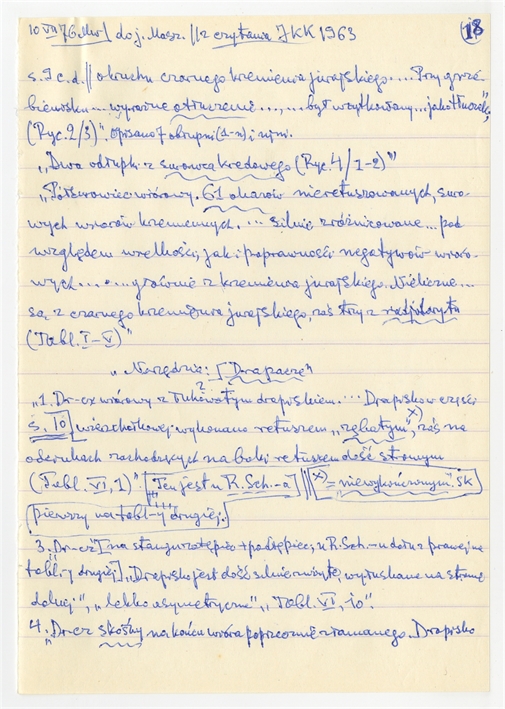 10 VII 76 Mw | do j. Masz. || z czytania JKK 1963
18
s. 9 c.d. || okruchu czarnego krzemienia jurajskiego.... Przy grzbieniowisku... wyraźne otłuczenie...,... był użytkowany... jako tłuczek",
(Ryc. 2/3)". Opisano 7 obłupni (1-n), i nimi.
„Dwa odłupki z surowca kredowego (Ryc. 4/1-2)"
„Półsurowiec wiórowy. 61 okazów nieretuszowanych, surowych wiórów krzemiennych... silnie zróżnicowane... pod
względem wielkości, jak i poprawności negatywów wiórowych...... głównie z krzemienia jurajskiego. Nieliczne...
są z czarnego krzemienia jurajskiego, zaś trzy z radjolarytu
(Tabl. I-V)"
„Narzędzia: [Drapacze"
„1. Dr-cz wiórowy z łukowatym drapiskiem.... Drapisko w części
s. 10 wierzchołkowej wykonano retuszem „zębatym", zaś na
odcinkach zachodzących na boki retuszem dość stromym
(Tabl. VI, 1)" [Ten jest u R. Sch.-a || x) = niewykończonym". SK
pierwszy na tabl-y drugiej.]
3. „Dr-cz [na stanow. zatępiec + podtępiec; u R. Sch.-u dołu z prawej na
tabl-y drugiej] „Drapisko jest dość silnie wybite, wyłuskane na stronę
dolnej", „lekko asymetryczne", „Tabl. VI, 10".
4. „Dr-cz skośny na końcu wióra poprzecznie złamanego. Drapisko